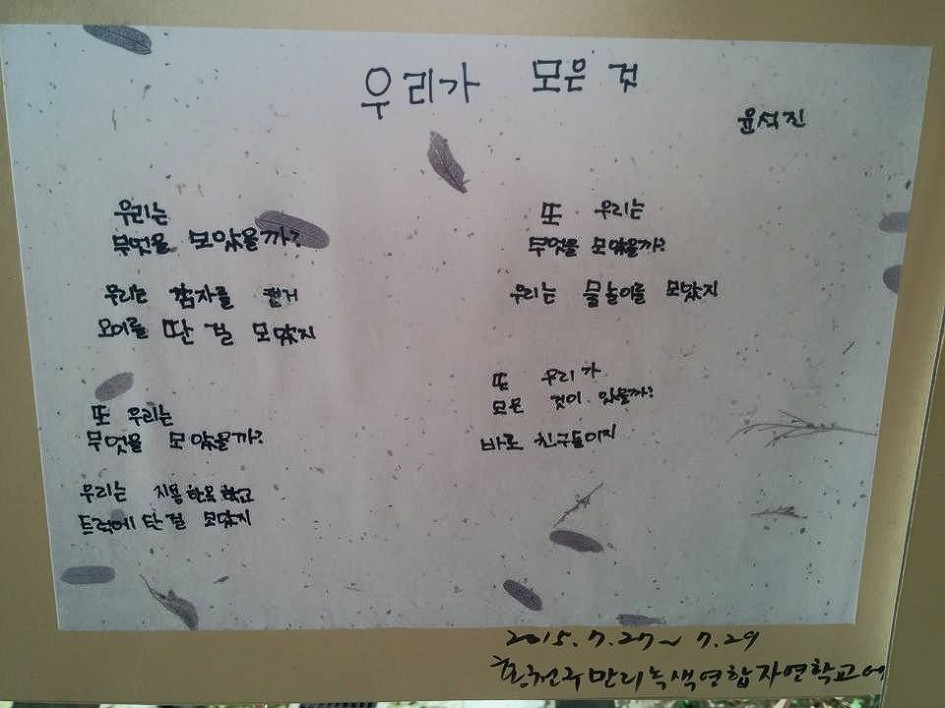 우리가 모은 것
윤석진
우리는
무엇을 모았을까?
우리는 감자를 캔거
오이를 딴 걸 모았지
또 우리는
무엇을 모았을까?
우리는 한옥 학교
트럭에 탄 걸 모았지
또 우리는
무엇을 모았을까?
우리는 물놀이를 모았지
또 우리가
모은 것이 있을까?
바로 친구들이지
2015. 7.27~ 7.29
홍천주만리녹색연합자연학교에